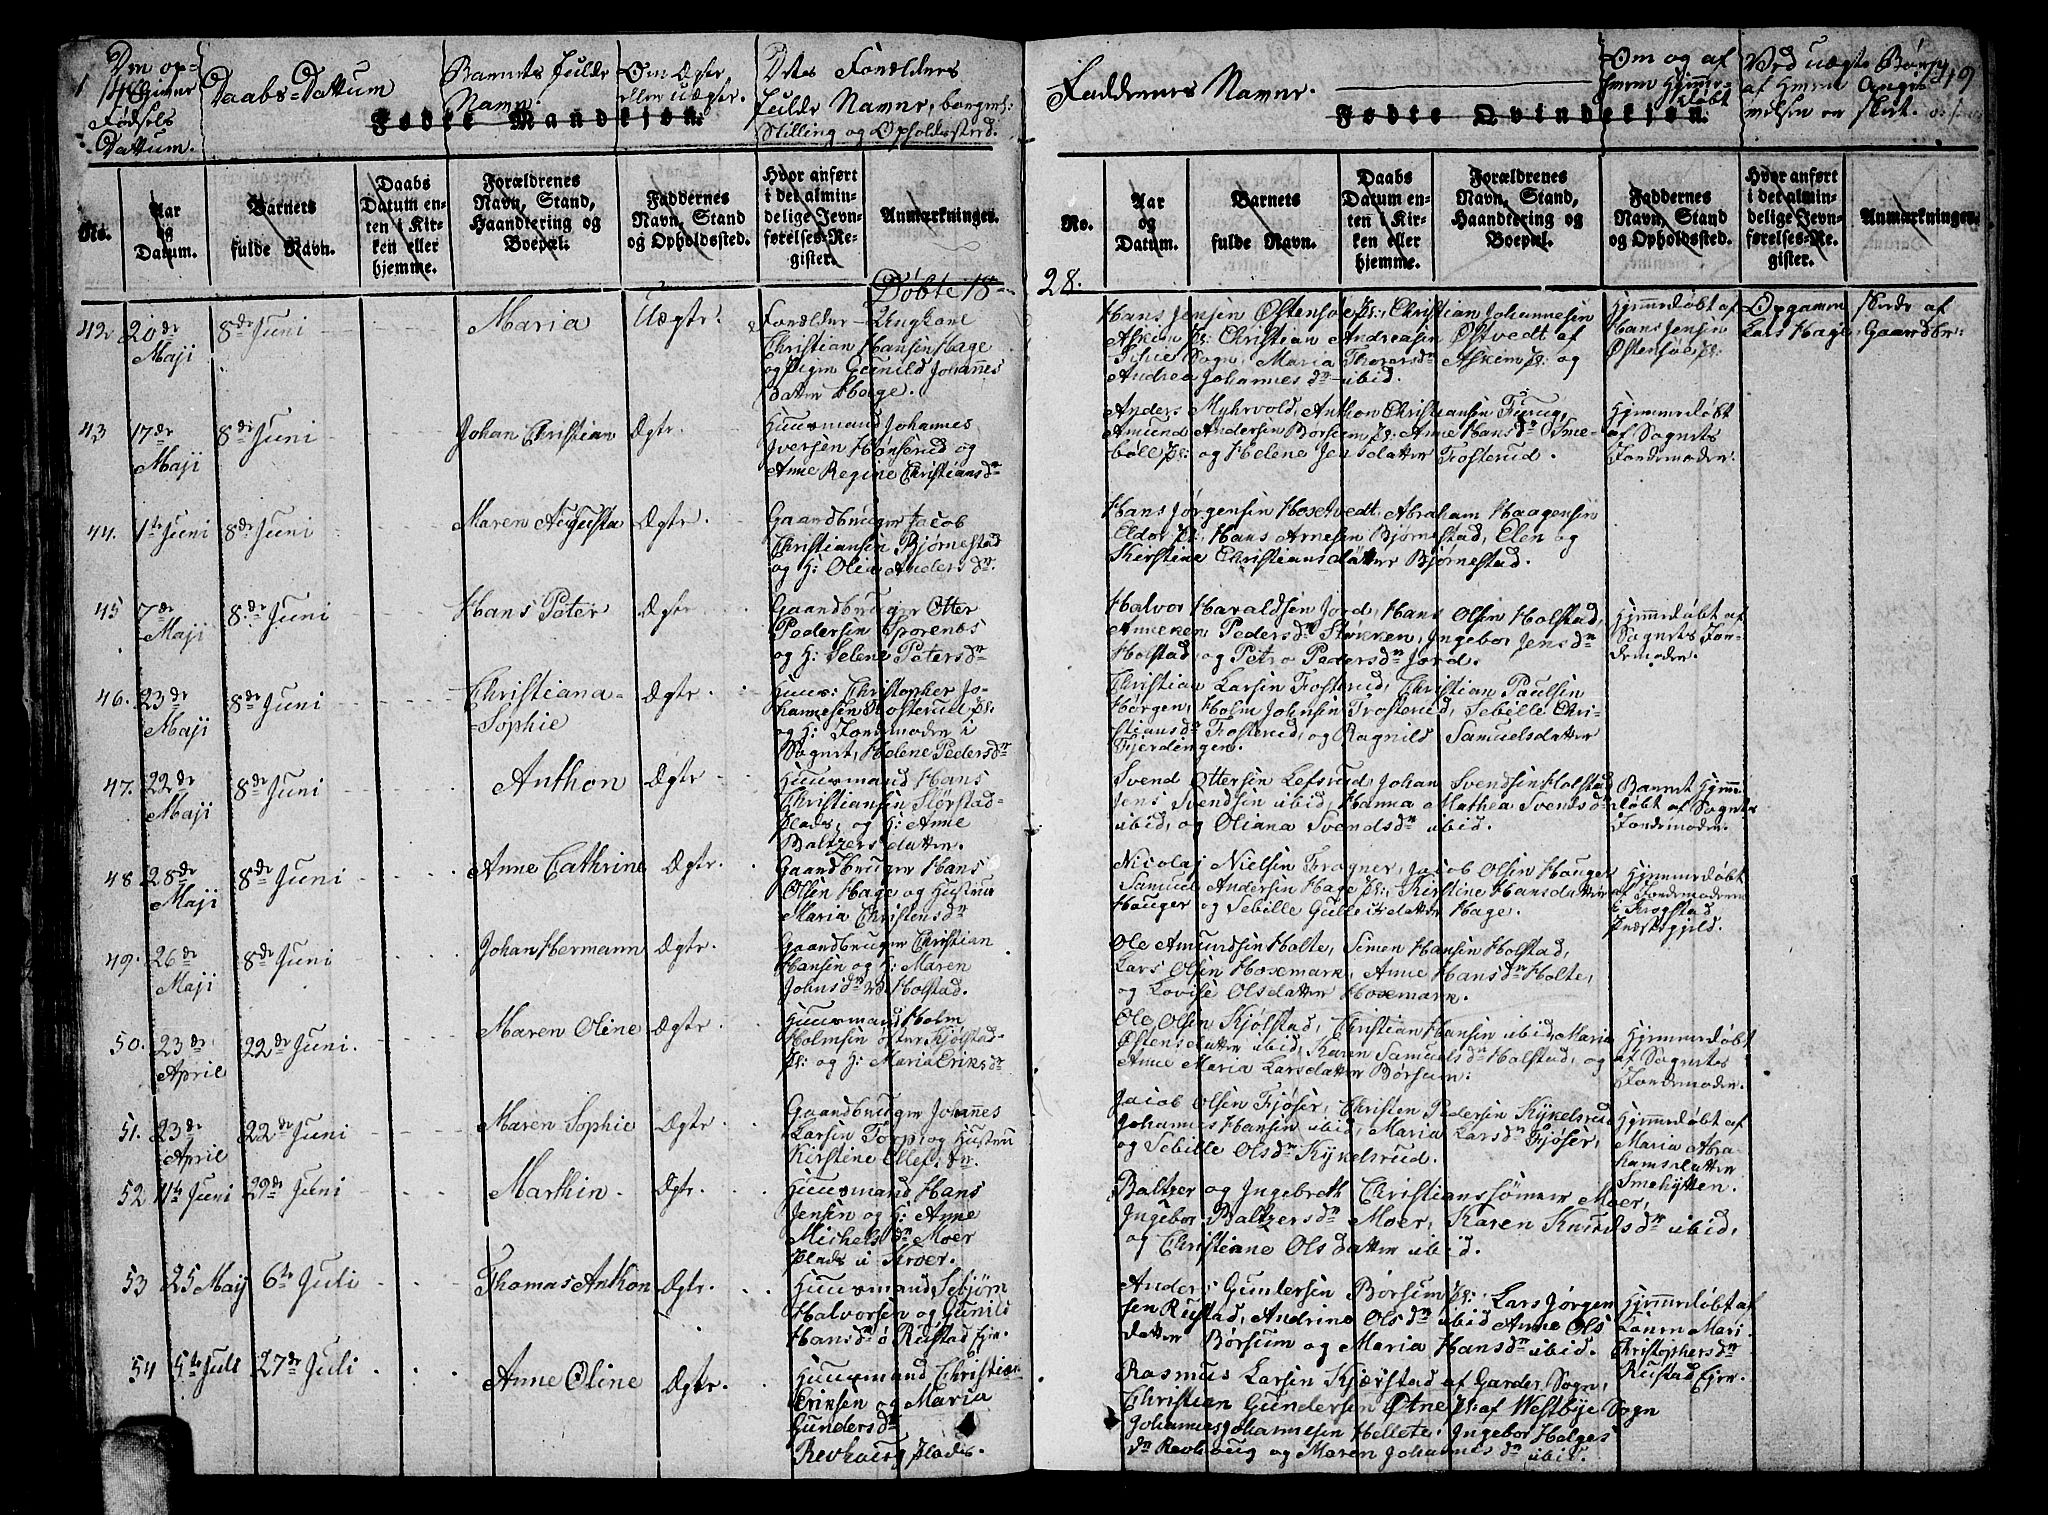 Den op-
givne
Fødsels
Dattum.
Daabs-Dattum
Barnets fulde
Navn.
Om Ægte,
eller uægte.
Dets Forældres
fulde Navne, borger:
Stilling og Opholdssted.
Fødte Mandkjøn.
No.
Aar
og
Datum.
Barnets
fulde Navn.
Daabs
Datum en-
ten i Kir-
ken eller
hjemme.
Forældrenes
Navn, Stand,
Haandtering og
Boepæl.
Faddernes
Navn, Stand
og Opholdssted.
Hvor anført
i det almin-
delige Jevn-
førelses-Re-
gister.
Anmærkninger.
Døbte 18
42 20de Maji 8de Juni Maria Uægte:
Forældre Ungkarl
Christian Hansen Hage
og Pigen Gunild Johannes
datter Hage.
43 17de Maji 8de Juni Johan Christian Ægte
Huusmand Johannes
Iversen Hønserud og
Anne Regine Christiansdr
44. 1te Juni 8de Juni Maren Augusta Ægte.
Gaardbruger Jacob
Christiansen Bjørnestad
og H: Olia Andersdr.
45 7de Maji 8de Juni Hans Peter Ægte
Gaardbruger Otter
Pedersen Sporenes
og H: Selene Petersdr
46. 23de Maji 8de Juni Christiana-Sophie Ægte.
Huus: Christopher Jo-
hannesen Frosterud pl:
og H: Jordemoder i
Sognet, Helene Pedersdr
47. 22de Maji 8de Juni Anthon Ægte
Huusmand Hans
Christiansen Størstad-
plads, og H: Anne
Baltzersdatter
48 28de Maji 8de Juni Anne Cathrine Ægte.
Gaardbruger Hans
Olsen Hage og Hustru
Maria Christensdr
49. 26de Maji 8de Juni Johan Hermann Ægte.
Gaardbruger Christian
Hansen og H: Maren
Johnsdr Holstad.
50. 23de April 22de Juni. Maren Oline Ægte
Huusmand Holm
Holmsen øster Kjølstad-
pl: og H: Maria Eriksdr
51. 23de April 22de Juni Maren Sophie Ægte.
Gaardbruger Johannes
Larsen Torp og Hustru
Kirstine Ollefsdr.
52 11te Juni 29de Juni Marthin. Ægte.
Huusmand Hans
Jensen og H: Anne
Michelsdr Moer
plads i Kroer.
53 25 Maij 6te Juli Thomas Anthon Ægte.
Huusmand Sebjørn
Halvorsen og Gunild
Hansdr: ø Rustad Eje.
54 5te Juli 27de Juli Anne Oline Ægte.
Huusmand Christian
Eriksen og Maria
Gundersdr
Revhoug plads.
Faddernes Navne.
Om og af
hvem hjemme-
døbt
Ved uægte Børn
af hvem Angi-
velsen er skeet.
149
Fødte Qvindekjøn.
No.
Aar
og
Datum.
Barnets
fulde Navn.
Daabs
Datum en-
ten i Kir-
ken eller
hjemme.
Forældrenes
Navn, Stand,
Haandtering og
Boepæl.
Faddernes
Navn, Stand
og Opholdssted.
Hvor anført
i det almin-
delige Jevn-
førelses-Re-
gister.
Anmærkninger.
28.
Hans Jensen Østensøe pl: Christian Johannesen
Askim pl: Christian Andreasen Østvedt af
Sogn, Maria Thoresdr Askim pl: og
Andrea Johannesdr ibid.
Hjemmedøbt af
Hans Jensen
Østensøe pl:
Opgaven skede af
Lars Hage, Gaardbr:
Anders Myhrvold, Anthon Christiansen Furug,
Amund Andersen Børsum pl: Anne Hansdr Sme-
bøll pl: og Helene Jensdatter Frosterud.
Hjemmedøbt
af Sognets
Jordemoder.
Hans Jørgensen Hosetvedt, Abraham Haagensen
Eldor pl: Hans Arnesen Bjørnestad, Elen og
Kirstine Christiansdatter Bjørnestad.
Halvor Haraldsen Jord, Hans Olsen Holstad,
Anneken Pedersdr Støkken, Ingebor Jensdr
Holstad og Petro Pedersdr Jord.
Hjemmedøbt af
Sognets Jor-
demoder.
Christian Larsen Frosterud, Christian Paulsen
Hørgen, Holm Johnsen Frosterud, Sebille Chri-
stiansdr Frosterud, og Ragnild Samuelsdatter
Fjerdingen.
Svend Ottersen Lefsrud, Johan Svendsen Holstad
Jens Svendsen ibid, Hanna Mathea Svendsdr
ibid, og Oliana Svendsdr ibid.
Barnet hjemme-
døbt af Sognets
Jordemoder.
Nicolaj Nielsen Frogner, Jacob Olsen Hauger
Samuel Andersen Hage pl: Kirstine Hansdatter
Hauger og Sebille Gulliksdatter Hage.
Hjemmedøbt
af Jordemoderen
i Krogstad
Præstegjeld.
Ole Amundsen Holte, Simen Hansen Holstad,
Lars Olsen Hosemark, Anne Hansdr Holte,
og Lovise Olsdatter Hosemark.
Ole Olsen Kjølstad, Christian Hansen ibid, Maria
Østensdatter ibid, Karen Samuelsdr Holstad, og
Anne Maria Larsdatter Børsum:
Hjemmedøbt
af Sognets
Jordemoder.
Jacob Olsen Fjøser, Christen Pedersen Kykelsrud
Johannes Hansen ibid, Maria Larsdr Fjøser,
og Sebille Olsdr Kykelsrud.
Hjemmedøbt af
Maria Abra-
hamsdatter
Smehytten.
Baltzer og Ingebreth Christianssønner Moer,
Ingebor Baltzersdr Moer, Karen Knudsdr ibid,
og Christiane Olsdatter ibid.
Anders Gundersen Børsum pl: Lars Jørgen
sen Rustad, Andrine Olsdr ibid Anne Ols
datter Børsum og Maria Hansdr ibid.
Hjemmedøbt af
Lauren Mari
Christophersdr
Rustad Eje.
Rasmus Larsen Kjærstad af Garder Sogn,
Christian Gundersen Otne pl: af Westbye Sogn
Johannes Johannesen Hellete, Ingebor Holges
dr Revhoug og Maren Johannesdr ibid.